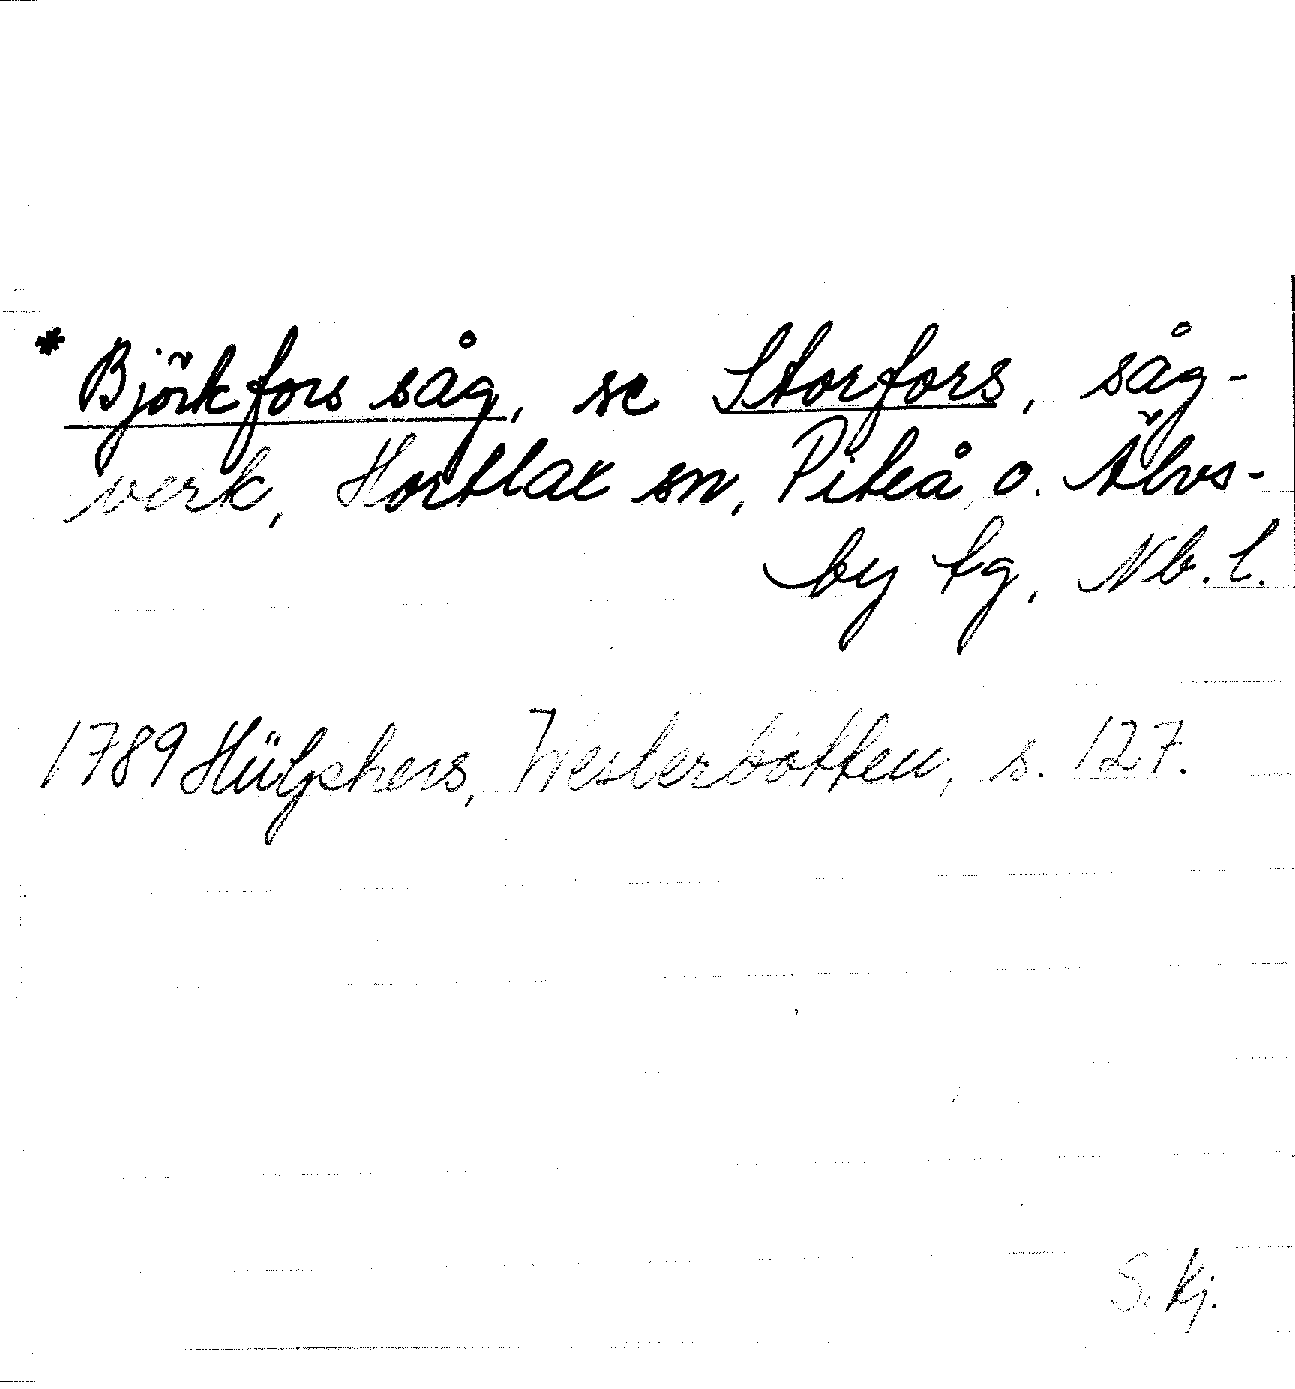 * Björkfors såg, se Storfors, såg-
verk, Hortlax sn, Piteå o. Älvs-
by tg, Nb. l.
1789 Hülphers, Westerbotten, s. 127.
S. Kj.